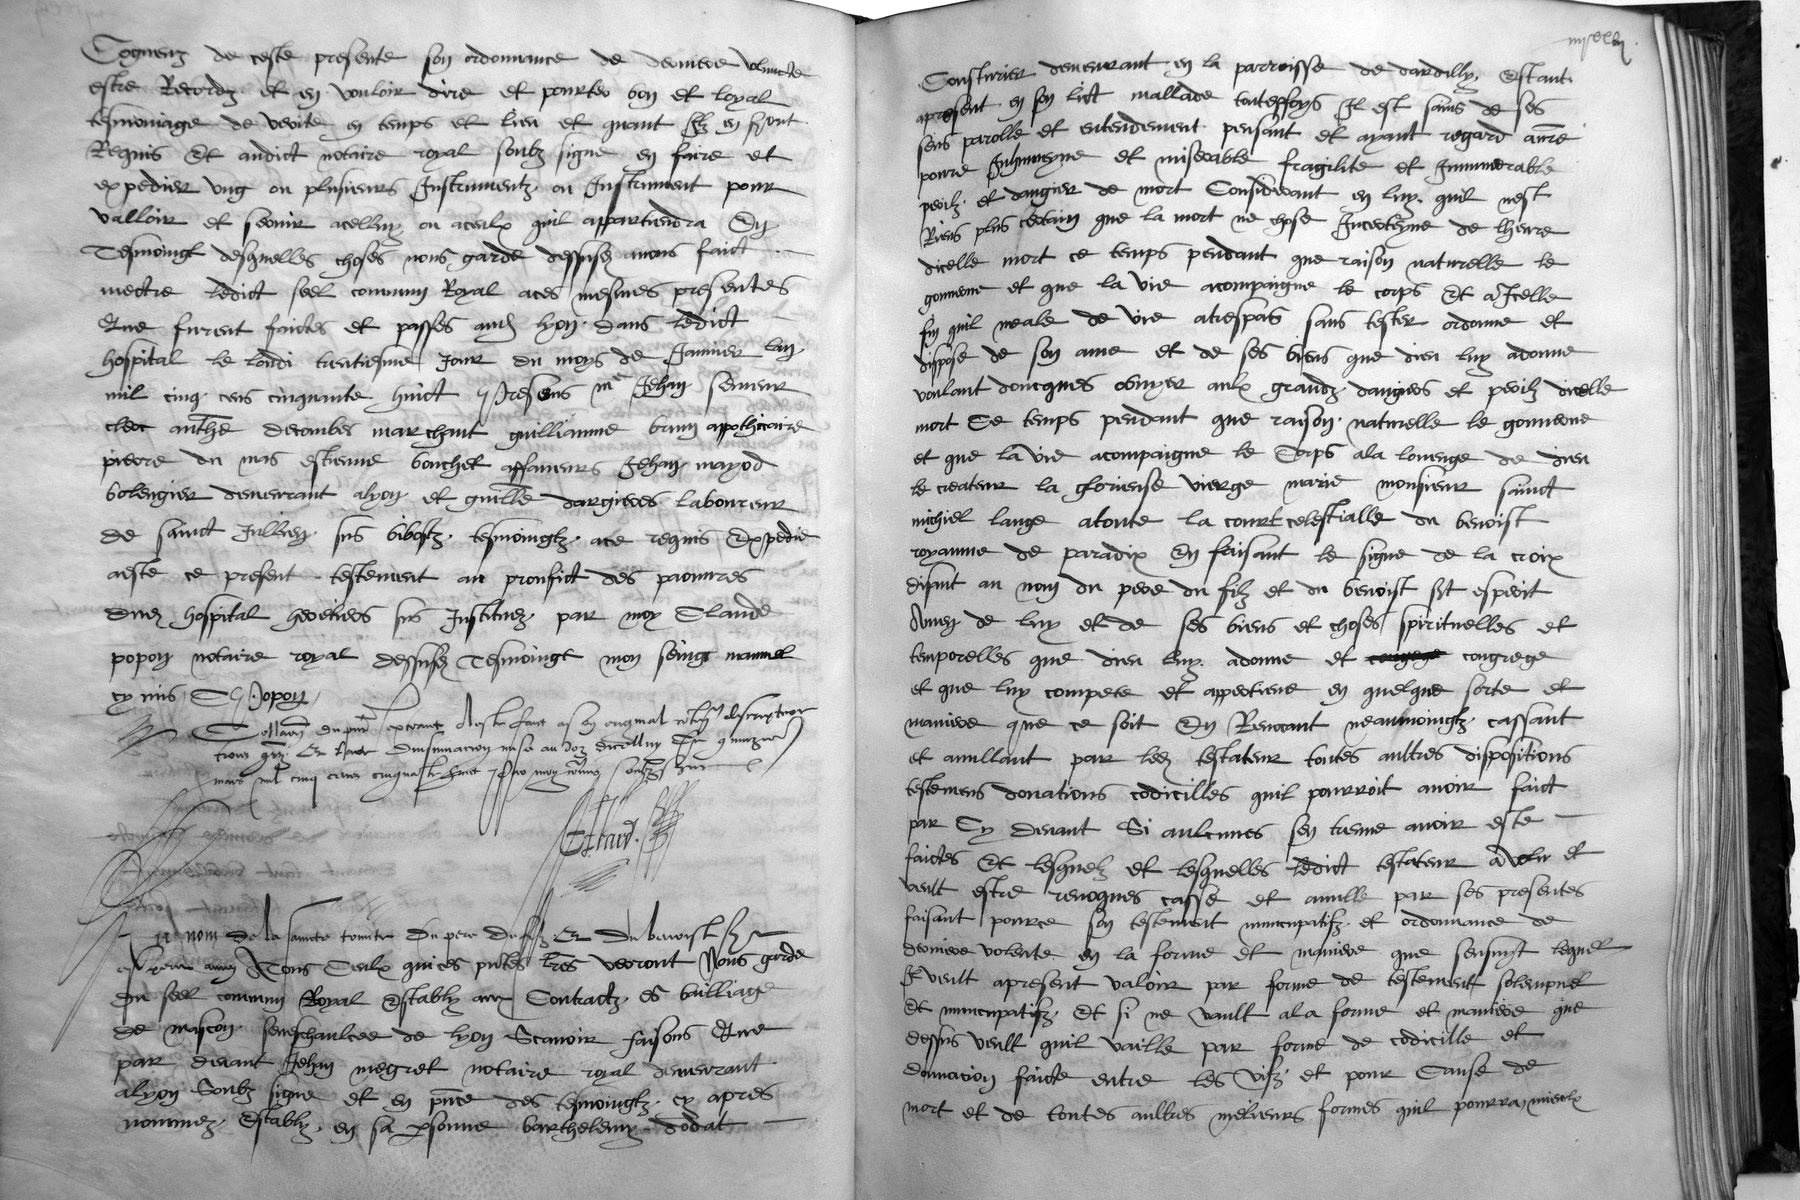 de ceste presente son ordonnance de derniere volunte
estre Recordz et en vouloir dire et pourter bon et loyal
tesmoniage de verite en temps et lieu et quant Ilz en seront
Requis Et audict notaire royal soubz signe en faire et
expedier ung ou plusieurs Instrumentz ou Instrument pour
valloir et servir acelluy ou aceulx quil appartiendra En
Tesmoingt desquelles choses nous garde dessusd avons faict
mectre ledict seel commun Royal aces mesmes presentes
Que furent faictes et passes aud lyon dans ledict
hospital le londi trentiesme Jour du moys de Janvier lan
mil cinq cens cinquante huict presens me Jehan
clerc anthe decombes marchant guilliaume brun appothicaire
pierre du mas estienne bouchet affaneurs Jehan mayod
bolengier demeurant alyon et guille dargieres laboureur
de sainct Jullien sus bibostz tesmoingtz ace requis Expedie
aeste ce present testement au prouffict des paouvres
dud hospital heretiers sus Instituez par moy Claude
popon notaire royal dessusd Tesmoingt mon seingt manuel
cy mis C Popon
extraict a este faict a son original
mars mil cinq cens cinquante huict
nom de la saincte trinite Du pere Du filz Et Du benoist st
esperit amen A Tous Ceulx qui ces pntes lres verront Nous garde
du seel commun Royal Establyz aux Contractz es bailliage
de mascon seneschaulcee de lyon Scavoir faisons Que
par devant Jehan megret notaire royal demeurant
alyon Soubz signe et en pnce des tesmoingtz cy apres
nommez Estably en sa personne barthelemy dodat
Consturier demeurant en la parroisse de dardilly Estant
apresent en son lict mallade touteffoys Il est sains de ses
sens parolle et entendement pensant et ayant regard
povre Inhumeyne et miserable fragilite et Innumerable
perilz et dangier de mort Considerant en luy quil nest
Riens plus certain que la mort ne chose Incerteyne de lheure
dicelle mort ce temps pendant que raison naturelle le
gouverne et que la vie acompaigne le corps Et a Icelle
fin quil neale de vie atrespas sans tester ordonne et
dispose de son ame et de ses biens que dieu luy adonne
voulant doncques obvyer aulx grandz dangiers et perilz dicelle
mort Ce temps pendant que raison naturelle le gouverne
et que la vie acompaigne le Corps ala louenge de dieu
le createur la glorieuse vierge marie monsieur sainct
michiel lange atoute la court celestialle du benoist
royaume de paradix En faisant le signe de la croix
disant au nom du pere du filz et du benoist sct esperit
Amen de luy et de ses biens et choses spirituelles et
temporelles que dieu luy adonne et congrege
et que luy compete et appertiene en quelque sorte et
maniere que ce soit En Revocant neaumoingtz cassant
et anullant par led testateur toutes aultres dispositions
testemens donations codicilles quil pourroit avoir faict
par Cy devant Si aulcunes sen treuve avoir este
faictes Et lesquelz et lesquelles ledict testateur a volu et
veult estre revoques casse et anulle par ses presentes
faisant pource son testement nuncupatifz et ordonnance de
derniere volente en la forme et maniere que sensuyt lequel
Il veult apresent valoir par forme de testement solempnel
Et nuncupatifz Et si ne vault ala forme et maniere que
dessus veult quil vaille par forme de codicille et
donnacion faicte entre les vifz et pour Cause de
mort et de toutes aultres melieurs formes quil pourra mieulx